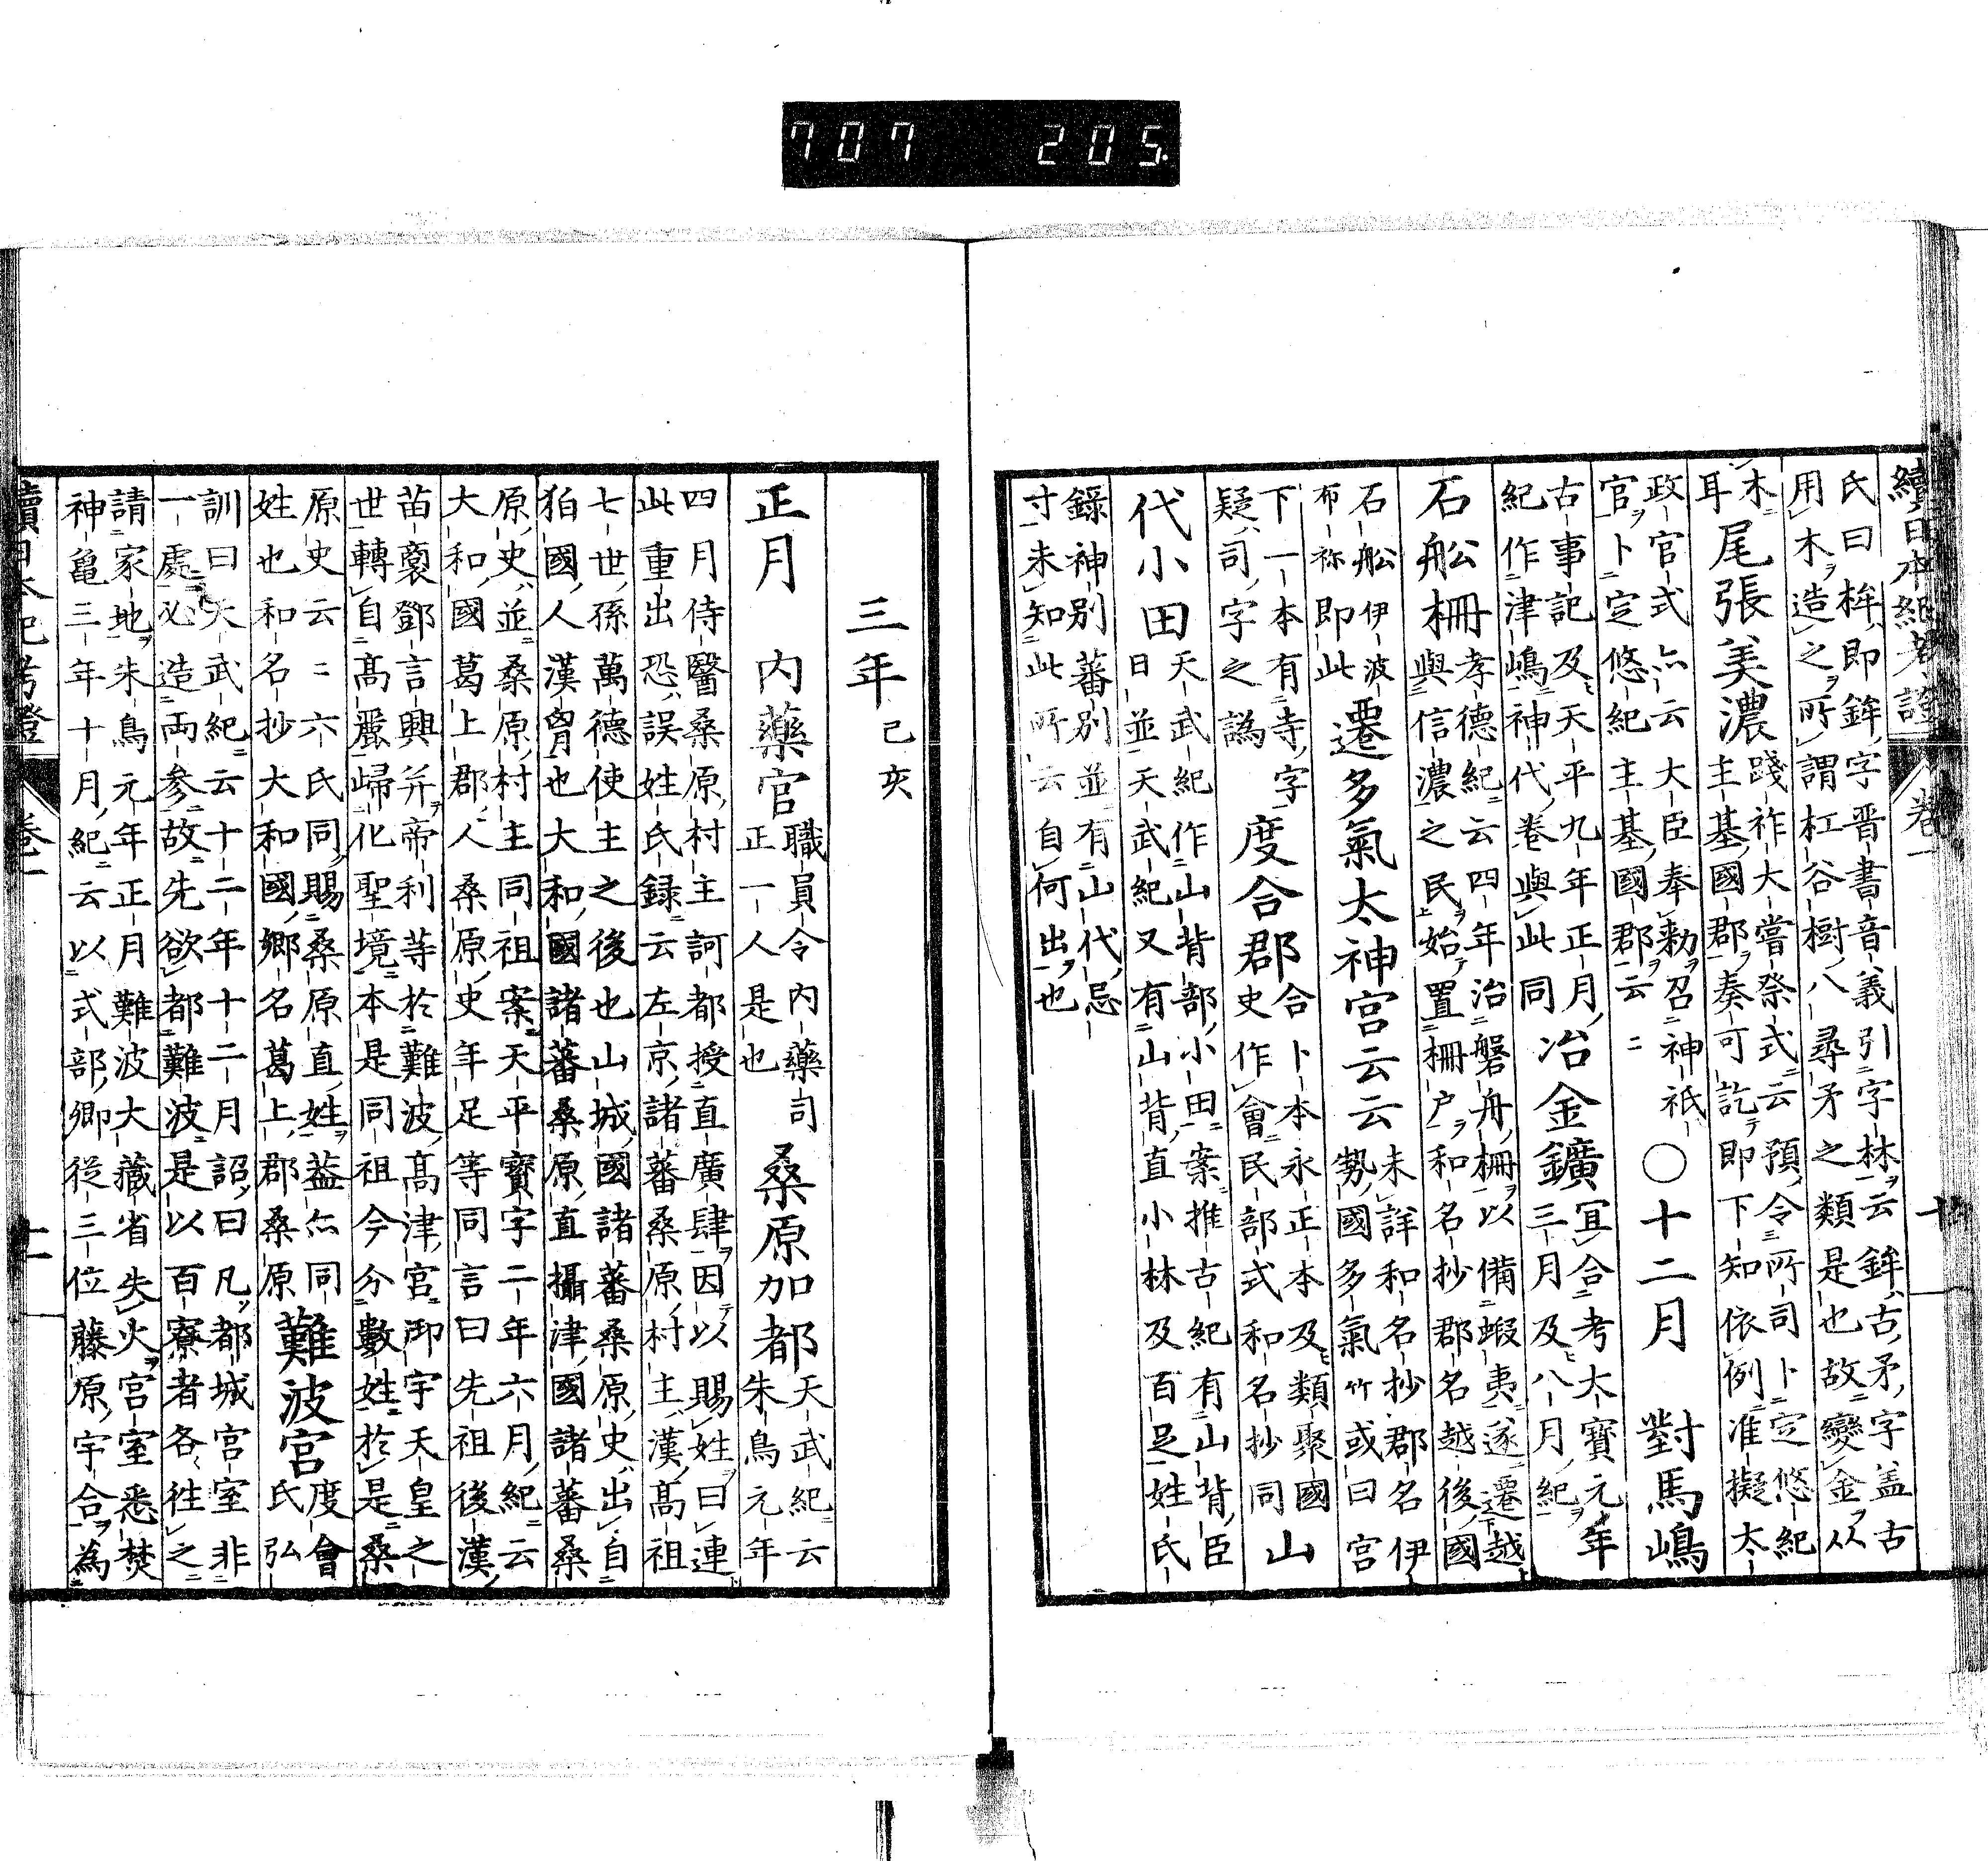 707 205
續日本紀考證 卷一 十
氏曰桙即鉾字晋書音義引字林云鉾古矛字盖古
用木造之所謂杠谷樹八尋矛之類是也故變金从
木耳 尾張美濃 踐祚大嘗祭式云預令所司卜定悠紀主基國郡奏可訖即下知依例准擬太
政官式亦云大臣奉勅召神祇官卜定悠紀主基國郡云〻 〇十二月 對馬嶋
古事記及天平九年正月紀作津嶋神代卷與此同 冶金鑛 冝合考大寶元年三月及八月紀
石舩柵 孝德紀云四年治磐舟柵以備蝦夷遂遷越與信濃之民始置柵户和名抄郡名越後國
石舩伊波布祢即此 遷多氣太神宮云云 未詳和名抄郡名伊勢國多氣竹或曰宮
下一本有寺字疑司字之譌 度合郡 合卜本永正本及類聚國史作會民部式和名抄同 山
代小田 天武紀作山背部小田案推古紀有山背臣日並天武紀又有山背直小林及百足姓氏
錄神別蕃別並有山代忌寸未知此所云自何出也
三年 己亥
正月 内藥官 職員令内藥司正一人是也 桑原加都 天武紀云朱鳥元年
四月侍醫桑原村主訶都授直廣肆因以賜姓曰連
此重出恐誤姓氏録云左京諸蕃桑原村主漢髙祖
七世孫萬德使主之後也山城國諸蕃桑原史出自
狛國人漢胄也大和國諸蕃桑原直攝津國諸蕃桑
原史並桑原村主同祖案天平寳字二年六月紀云
大和國葛上郡人桑原史年足等同言曰先祖後漢
苗裔鄧言興并帝利等於難波髙津宮御宇天皇之
世轉自髙麗歸化聖境本是同祖今分數姓於是桑
原史云〻六氏同賜桑原直姓盖亦同
姓也和名抄大和國鄉名葛上郡桑原 難波宮 度會氏弘
訓曰天武紀云十二年十二月詔曰凡都城宮室非
一處必造両參故先欲都難波是以百寮者各往之
請家地朱鳥元年正月難波大藏省失火宮室悉焚
神龜三年十月紀云以式部卿從三位藤原宇合為
續日本紀考證 卷一 十一